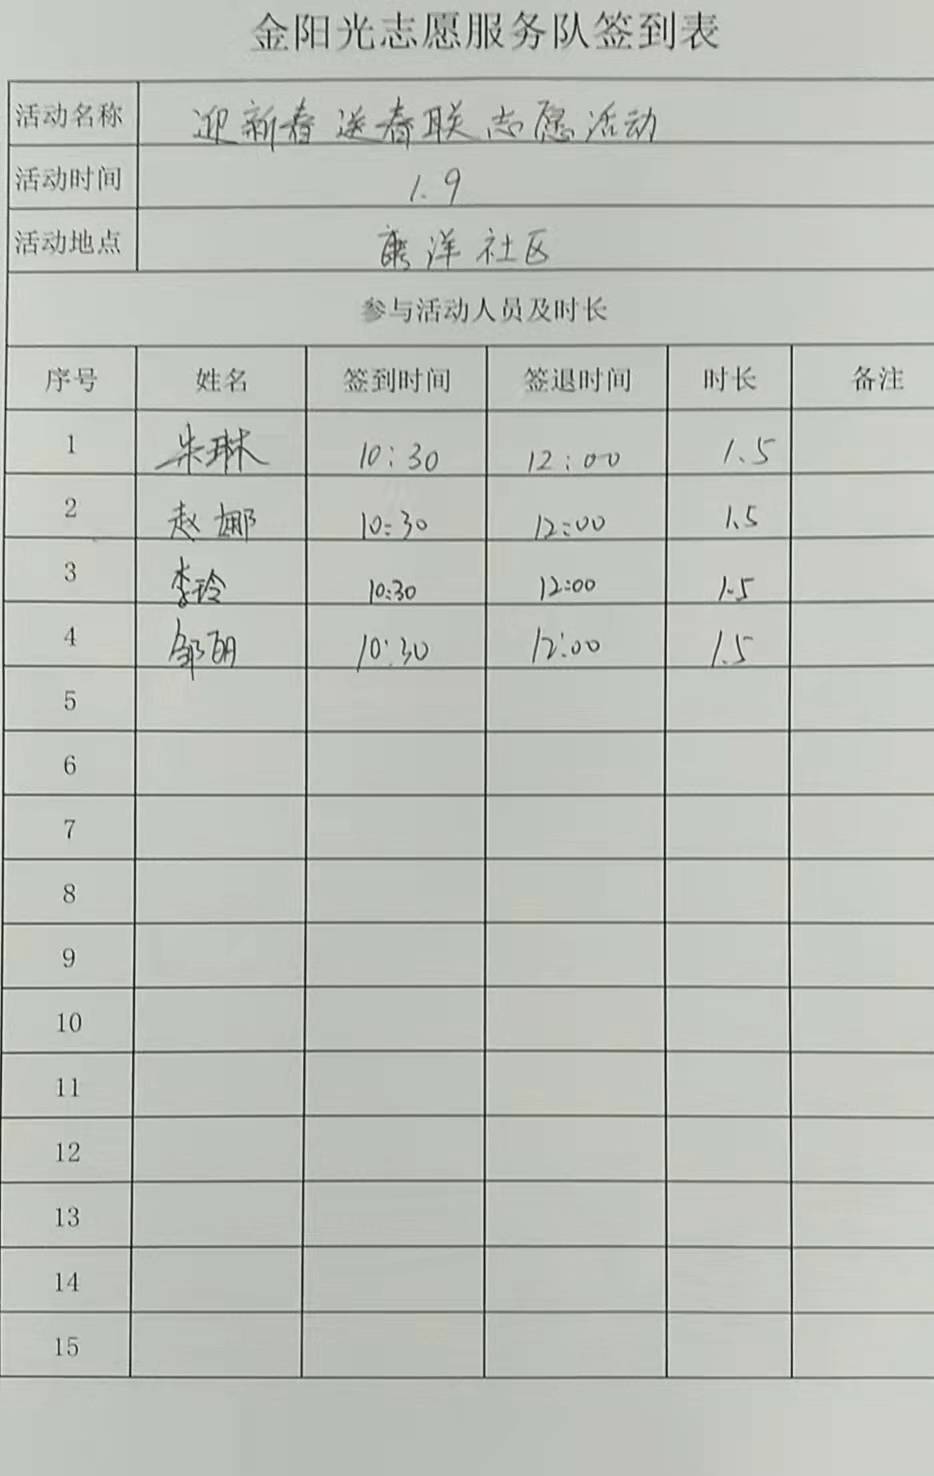 金阳光志愿服务队签到表
活动名称 迎新春送春联志愿活动
活动时间 1.9
活动地点 洋社区
参与活动人员及时长
序号 姓名 签到时间 签退时间 时长 备注
1 朱琳 10:30 12:00 1.5
2 赵娜 10:30 12:00 1.5
3 李玲 10:30 12:00 1.5
4 邹 10:30 12:00 1.5
5
6
7
8
9
10
11
12
13
14
15